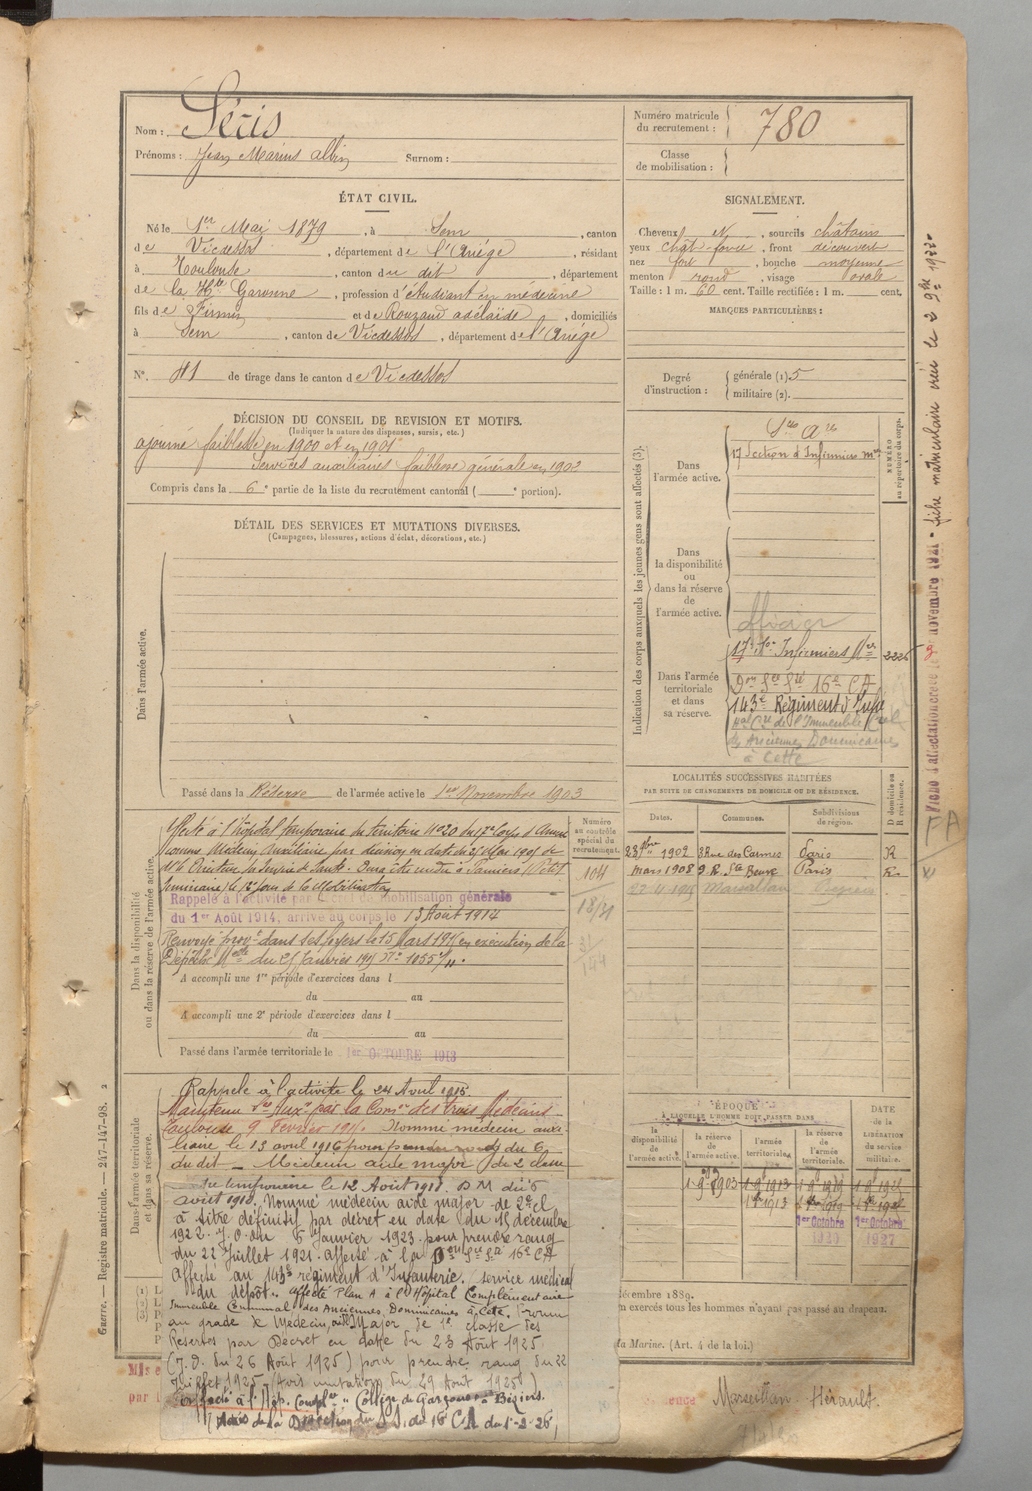 Nom : Sécis
Prénoms : Jean Marius Albin Surnom :
Numéro matricule du recrutement : 780
Classe de mobilisation :
ÉTAT CIVIL.
Né le 1er Mai 1879, à Sem, canton
de Vicdessos, département de l'Ariége, résidant
à Toulouse, canton du dit, département
de la Hte Garonne, profession d'étudiant en médecine
fils de Firmin et de Rouzaud adelaïde, domiciliés
à Sem, canton de Vicdessos, département de l'Ariége
N°. 41 de tirage dans le canton de Vicdessos
SIGNALEMENT.
Cheveux N, sourcils châtains
yeux chât-foncé, front découvert
nez fort, bouche moyenne
menton rond, visage ovale
Taille : 1 m. 60 cent. Taille rectifiée : 1 m. cent.
MARQUES PARTICULIÈRES :
Degré d'instruction : générale (1). 5
militaire (2).
DÉCISION DU CONSEIL DE REVISION ET MOTIFS.
(Indiquer la nature des dispenses, sursis, etc.)
ajourné faiblesse en 1900 et en 1901
Services auxiliaires faiblesse générale en 1902
Compris dans la 6e partie de la liste du recrutement cantonal ( e portion).
DÉTAIL DES SERVICES ET MUTATIONS DIVERSES.
(Campagnes, blessures, actions d'éclat, décorations, etc.)
Dans l'armée active.
Passé dans la Réserve de l'armée active le 1er Novembre 1903
Indication des corps auxquels les jeunes gens sont affectés (3).
NUMÉRO au répertoire du corps.
Dans l'armée active.
17 Section d'Infirmiers mres
Dans la disponibilité ou dans la réserve de l'armée active.
Officier
Dans l'armée territoriale et dans sa réserve.
17e Son Infirmiers Mres 2226
16e CA
143e Régiment d'Infie
de l'Immeuble
des Anciennes Dominicaines
à Cette
LOCALITÉS SUCCESSIVES HABITÉES
PAR SUITE DE CHANGEMENTS DE DOMICILE OU DE RÉSIDENCE.
Dates. Communes. Subdivisions de région. D domicile ou R résidence.
23 9bre 1902 3 Rue des Carmes Paris R
mars 1908 9 R. Ste Beuve Paris R
Marseillan Béziers
Dans la disponibilité ou dans la réserve de l'armée active.
Numéro au contrôle spécial du recrutement.
104
18/21
21/144
Affecté à l'Hôpital temporaire du territoire N° 20 du 17e Corps d'Armée
comme Médecin Auxiliaire par décision en date du 25 Mai 1905 de
Mr le Directeur du Service de Santé. Devra être rendu à Pamiers (Petit
Séminaire) le 12e jour de la Mobilisation
Rappelé à l'activité par Décret de mobilisation générale
du 1er Août 1914, arrivé au corps le 13 Août 1914
Renvoyé provt dans ses foyers le 15 Mars 1915 en exécution de la
Dépêche Mlle du 25 Janvier 1915 N° 1055
A accompli une 1re période d'exercices dans l
du au
A accompli une 2e période d'exercices dans l
du au
Passé dans l'armée territoriale le 1er OCTOBRE 1913
Dans l'armée territoriale et dans sa réserve.
Rappelé à l'activité le 24 Avril 1915.
Maintenu Sce Auxre par la Comon des trois Médecins
Toulouse 9 Février 191 . Nommé médecin auxi-
liaire le 13 avril 1916 pour prendre rang du 6
du dit _ Médecin aide major de 2e classe
à titre temporaire le 12 Août 1918. D.M du 6
août 1918. Nommé médecin aide major de 2e cl
à titre définitif par décret en date du 15 décembre
1922. J.O. du 6 Janvier 1923. pour prendre rang
du 22 Juillet 1921. Affecté à la 16e CA
Affecté au 143e régiment d'Infanterie. service médical
du dépôt. Affecté Plan A à l'Hôpital Complémentaire
Immeuble Communal des Anciennes Dominicaines à Cette. Promu
au grade de Médecin, aide Major de 1e classe des
Réserves par Décret en date du 23 Août 1925
(J.O. du 26 Août 1925) pour prendre rang du 22
Juillet 1925. (Avis mutation du 29 Août 1925)
affecté à l'Hôp. Compre " Collège de Garçons " à Béziers.
(Avis de la Direction du S.S. du 16e CA du 1-2-26)
ÉPOQUE
À LAQUELLE L'HOMME DOIT PASSER DANS
la disponibilité de l'armée active. la réserve de l'armée active. l'armée territoriale. la réserve de l'armée territoriale. DATE de la LIBÉRATION du service militaire.
1er 9bre 1903
1er Octobre 1er Octobre
1920 1927
décembre 1889.
en exercés tous les hommes n'ayant pas passé au drapeau.
la Marine. (Art. 4 de la loi.)
Marseillan. Hérault.
Guerre. — Registre matricule. — 247-147-98. 2
novembre 1921 - fiche matriculaire créée le 2 9bre 1933